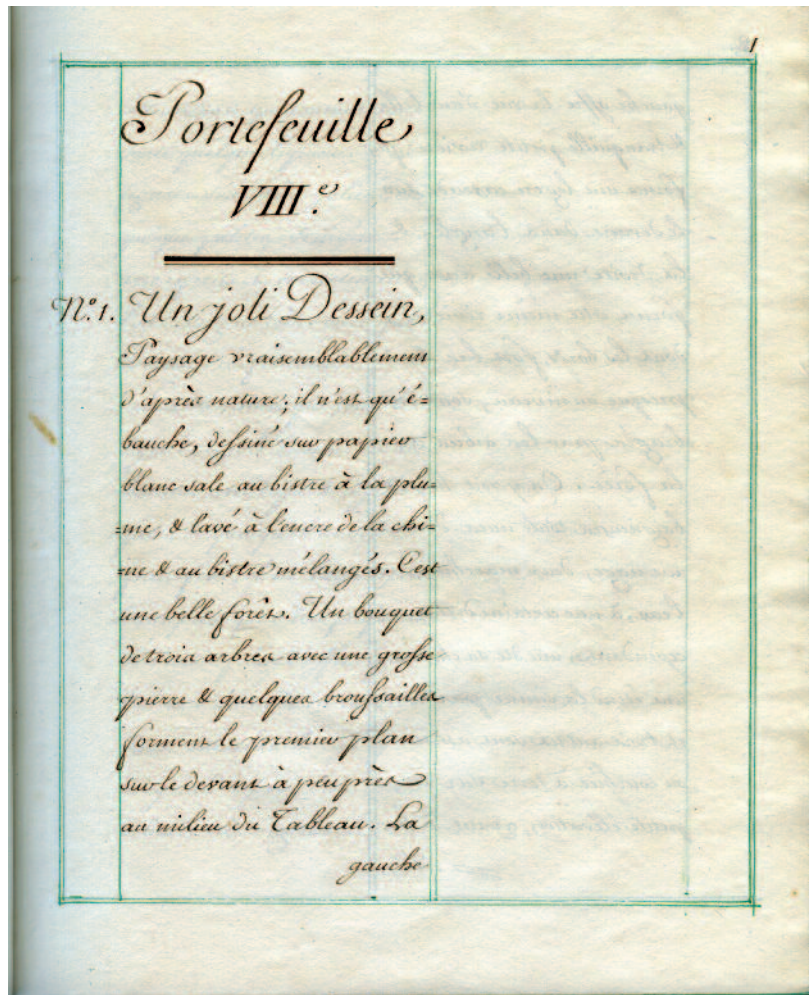 1
Portefeuille
VIII.e
N.o 1. Un joli Dessein,
Paysage vraisemblablement
d'après nature; il n'est qu'é=
bauche, dessiné sur papier
blanc sale au bistre à la plu=
=me, & lavé à l'encre de la chi=
=ne & au bistre mélangés. C'est
une belle forêt. Un bouquet
de trois arbres avec une grosse
pierre & quelques broussailles
forment le premier plan
sur le devant à peu près
au milieu du Tableau. La
gauche